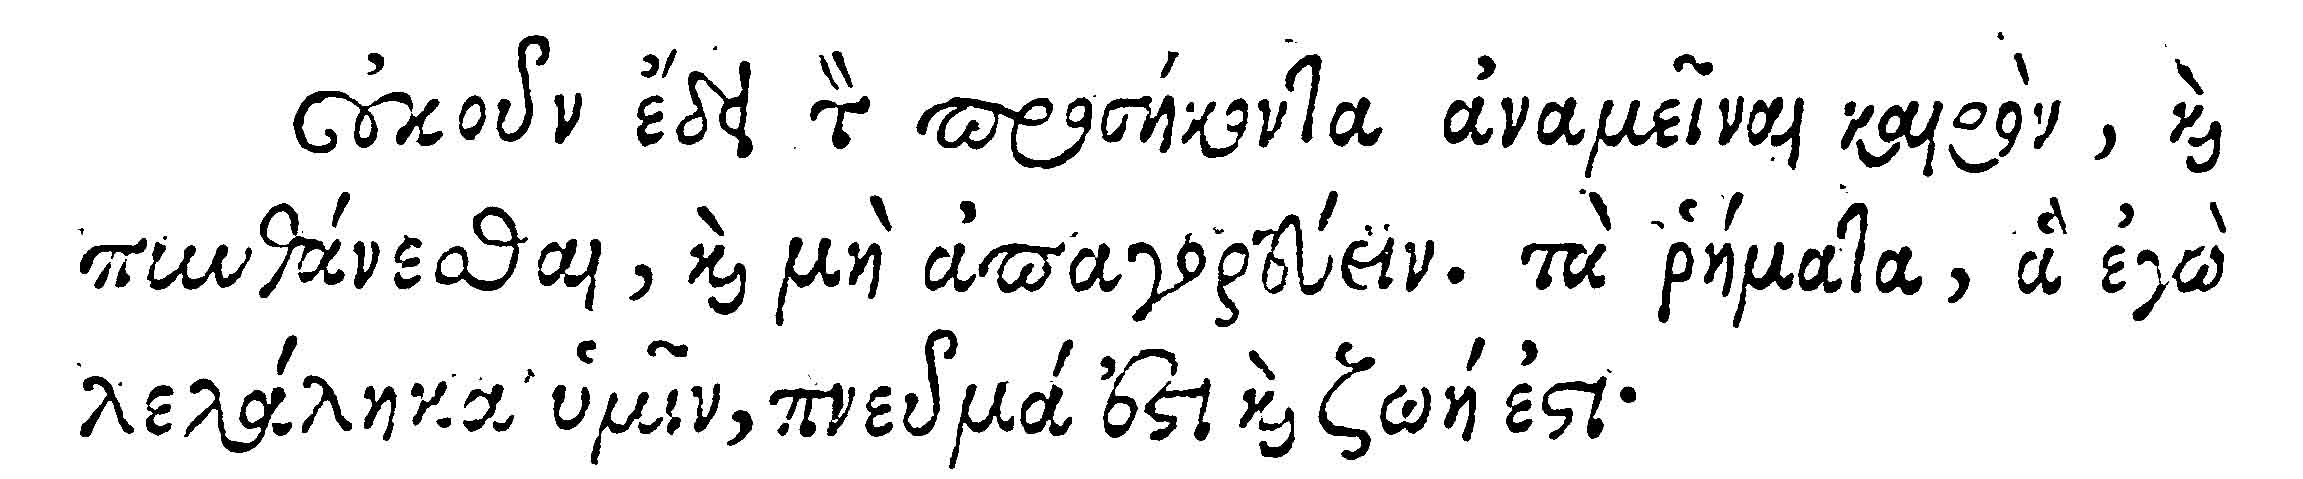 οὐκοῦν ἔδει τὸν προσήκοντα ἀναμεῖναι καιρὸν, καὶ
πυνθάνεσθαι, καὶ μὴ ἀπαγορεύειν. τὰ ῥήματα, ἃ ἐγὼ
λελάληκα ὑμῖν, πνεῦμά ἐστι καὶ ζωή ἐστι.